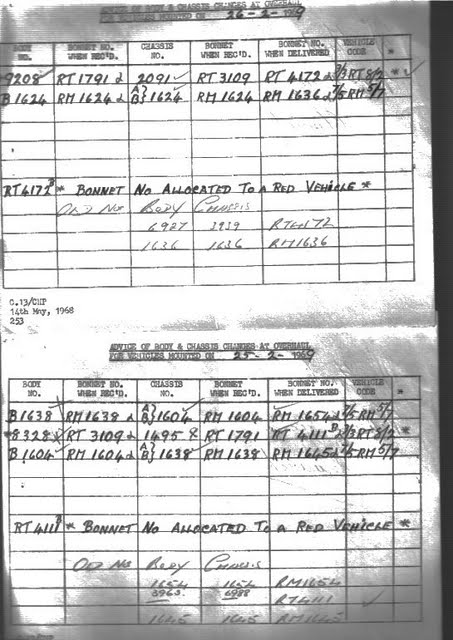 ADVICE OF BODY & CHASSIS CHANGES AT OVERHAUL
FOR VEHICLES MOUNTED ON 26-2-1969
BODY NO. BONNET NO. WHEN REC'D. CHASSIS NO. BONNET WHEN REC'D. BONNET NO. WHEN DELIVERED VEHICLE CODE *
9208 RT 1791 2091 ✓ RT 3109 RT 4172 3/3 RT 8/2 *
B 1624 RM 1624 A} B} 1624 RM 1624 RM 1636 7/5 RM 5/7
RT 4172 * BONNET NO ALLOCATED TO A RED VEHICLE *
OLD NOS BODY CHASSIS
6927 3939 RT4172
1636 1636 RM1636
C.13/CHP
14th May, 1968
253
ADVICE OF BODY & CHASSIS CHANGES AT OVERHAUL
FOR VEHICLES MOUNTED ON 25-2-1969
BODY NO. BONNET NO. WHEN REC'D. CHASSIS NO. BONNET WHEN REC'D. BONNET NO. WHEN DELIVERED VEHICLE CODE *
B 1638 RM 1638 A} B} 1604 RM 1604 RM 1654 7/5 RM 5/7
*8328 RT 3109 1495 RT 1791 RT 4111 3/3 RT 8/2 *
B 1604 RM 1604 A} B} 1638 RM 1638 RM 1645 7/5 RM 5/7
RT 4111 * BONNET NO ALLOCATED TO A RED VEHICLE *
OLD NOS BODY CHASSIS
1654 1654 RM1654
3963 6988 RT4111 ✓
1645 1645 RM1645